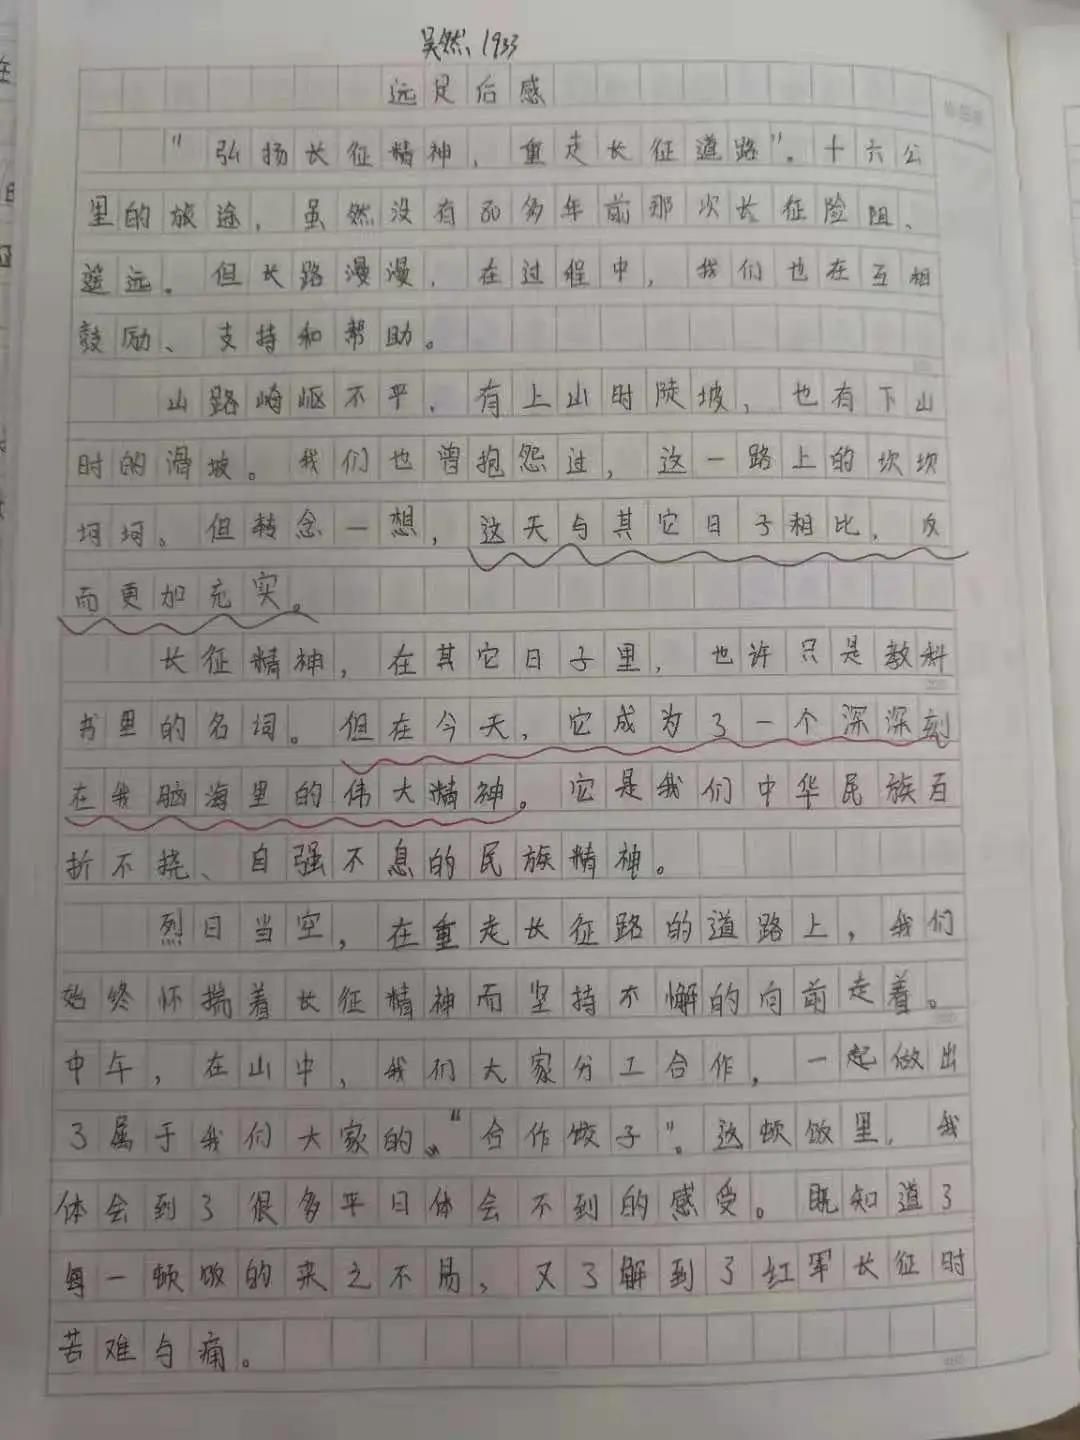 吴然、1933
远足后感
"弘扬长征精神，重走长征道路"。十六公
里的旅途，虽然没有80多年前那次长征险阻、
遥远。但长路漫漫，在过程中，我们也在互相
鼓励、支持和帮助。
山路崎岖不平，有上山时陡坡，也有下山
时的滑坡。我们也曾抱怨过，这一路上的坎坎
坷坷。但转念一想，这天与其它日子相比，反
而更加充实。
长征精神，在其它日子里，也许只是教科
书里的名词。但在今天，它成为了一个深深刻
在我脑海里的伟大精神。它是我们中华民族百
折不挠、自强不息的民族精神。
烈日当空，在重走长征路的道路上，我们
始终怀揣着长征精神而坚持不懈的向前走着。
中午，在山中，我们大家分工合作，一起做出
了属于我们大家的、"合作饺子"。这顿饭里，我
体会到了很多平日体会不到的感受。既知道了
每一顿饭的来之不易，又了解到了红军长征时
苦难与痛。